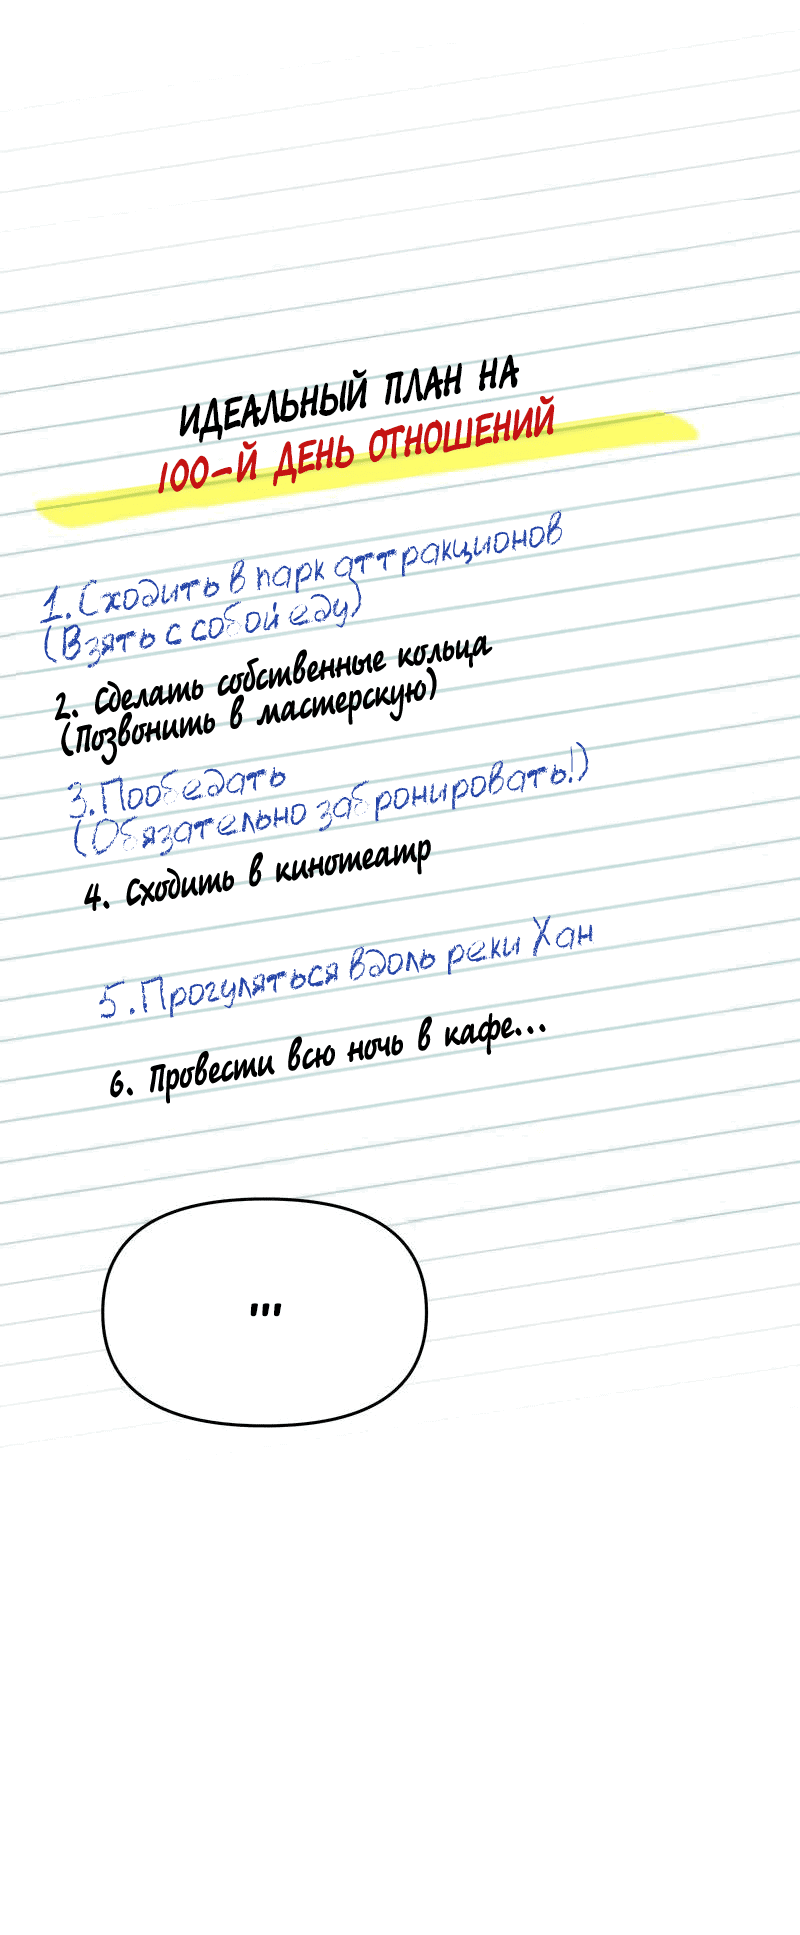 ИДЕАЛЬНЫЙ ПЛАН НА
100-Й ДЕНЬ ОТНОШЕНИЙ
1. Сходить в парк аттракционов
(Взять с собой еду)
2. Сделать собственные кольца
(Позвонить в мастерскую)
3. Пообедать
(Обязательно забронировать!)
4. Сходить в кинотеатр
5. Прогуляться вдоль реки Хан
6. Провести всю ночь в кафе...
...